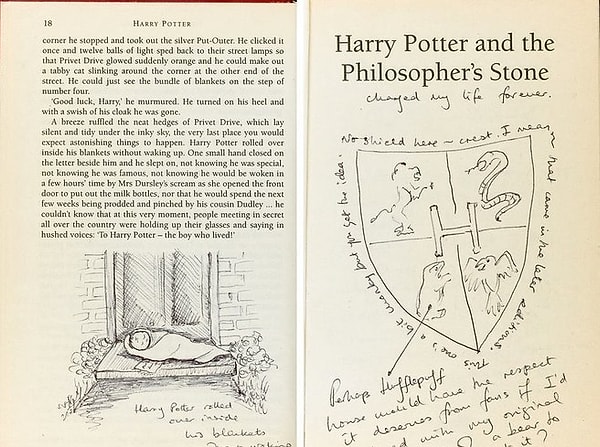 18
HARRY POTTER
corner he stopped and took out the silver Put-Outer. He clicked it
once and twelve balls of light sped back to their street lamps so
that Privet Drive glowed suddenly orange and he could make out
a tabby cat slinking around the corner at the other end of the
street. He could just see the bundle of blankets on the step of
number four.
'Good luck, Harry,' he murmured. He turned on his heel and
with a swish of his cloak he was gone.
A breeze ruffled the neat hedges of Privet Drive, which lay
silent and tidy under the inky sky, the very last place you would
expect astonishing things to happen. Harry Potter rolled over
inside his blankets without waking up. One small hand closed on
the letter beside him and he slept on, not knowing he was special,
not knowing he was famous, not knowing he would be woken in
a few hours' time by Mrs Dursley's scream as she opened the front
door to put out the milk bottles, nor that he would spend the next
few weeks being prodded and pinched by his cousin Dudley ... he
couldn't know that at this very moment, people meeting in secret
all over the country were holding up their glasses and saying in
hushed voices: 'To Harry Potter – the boy who lived!'
Harry Potter rolled
over inside
his blankets
Harry Potter and the
Philosopher's Stone
changed my life forever.
No shield here – crest, I mean,
that came in the later editions.
This one's a bit wonky but you get the idea.
H
Perhaps Hufflepuff
house would have the respect
it deserves from fans if I'd
with my original
a bear to
it